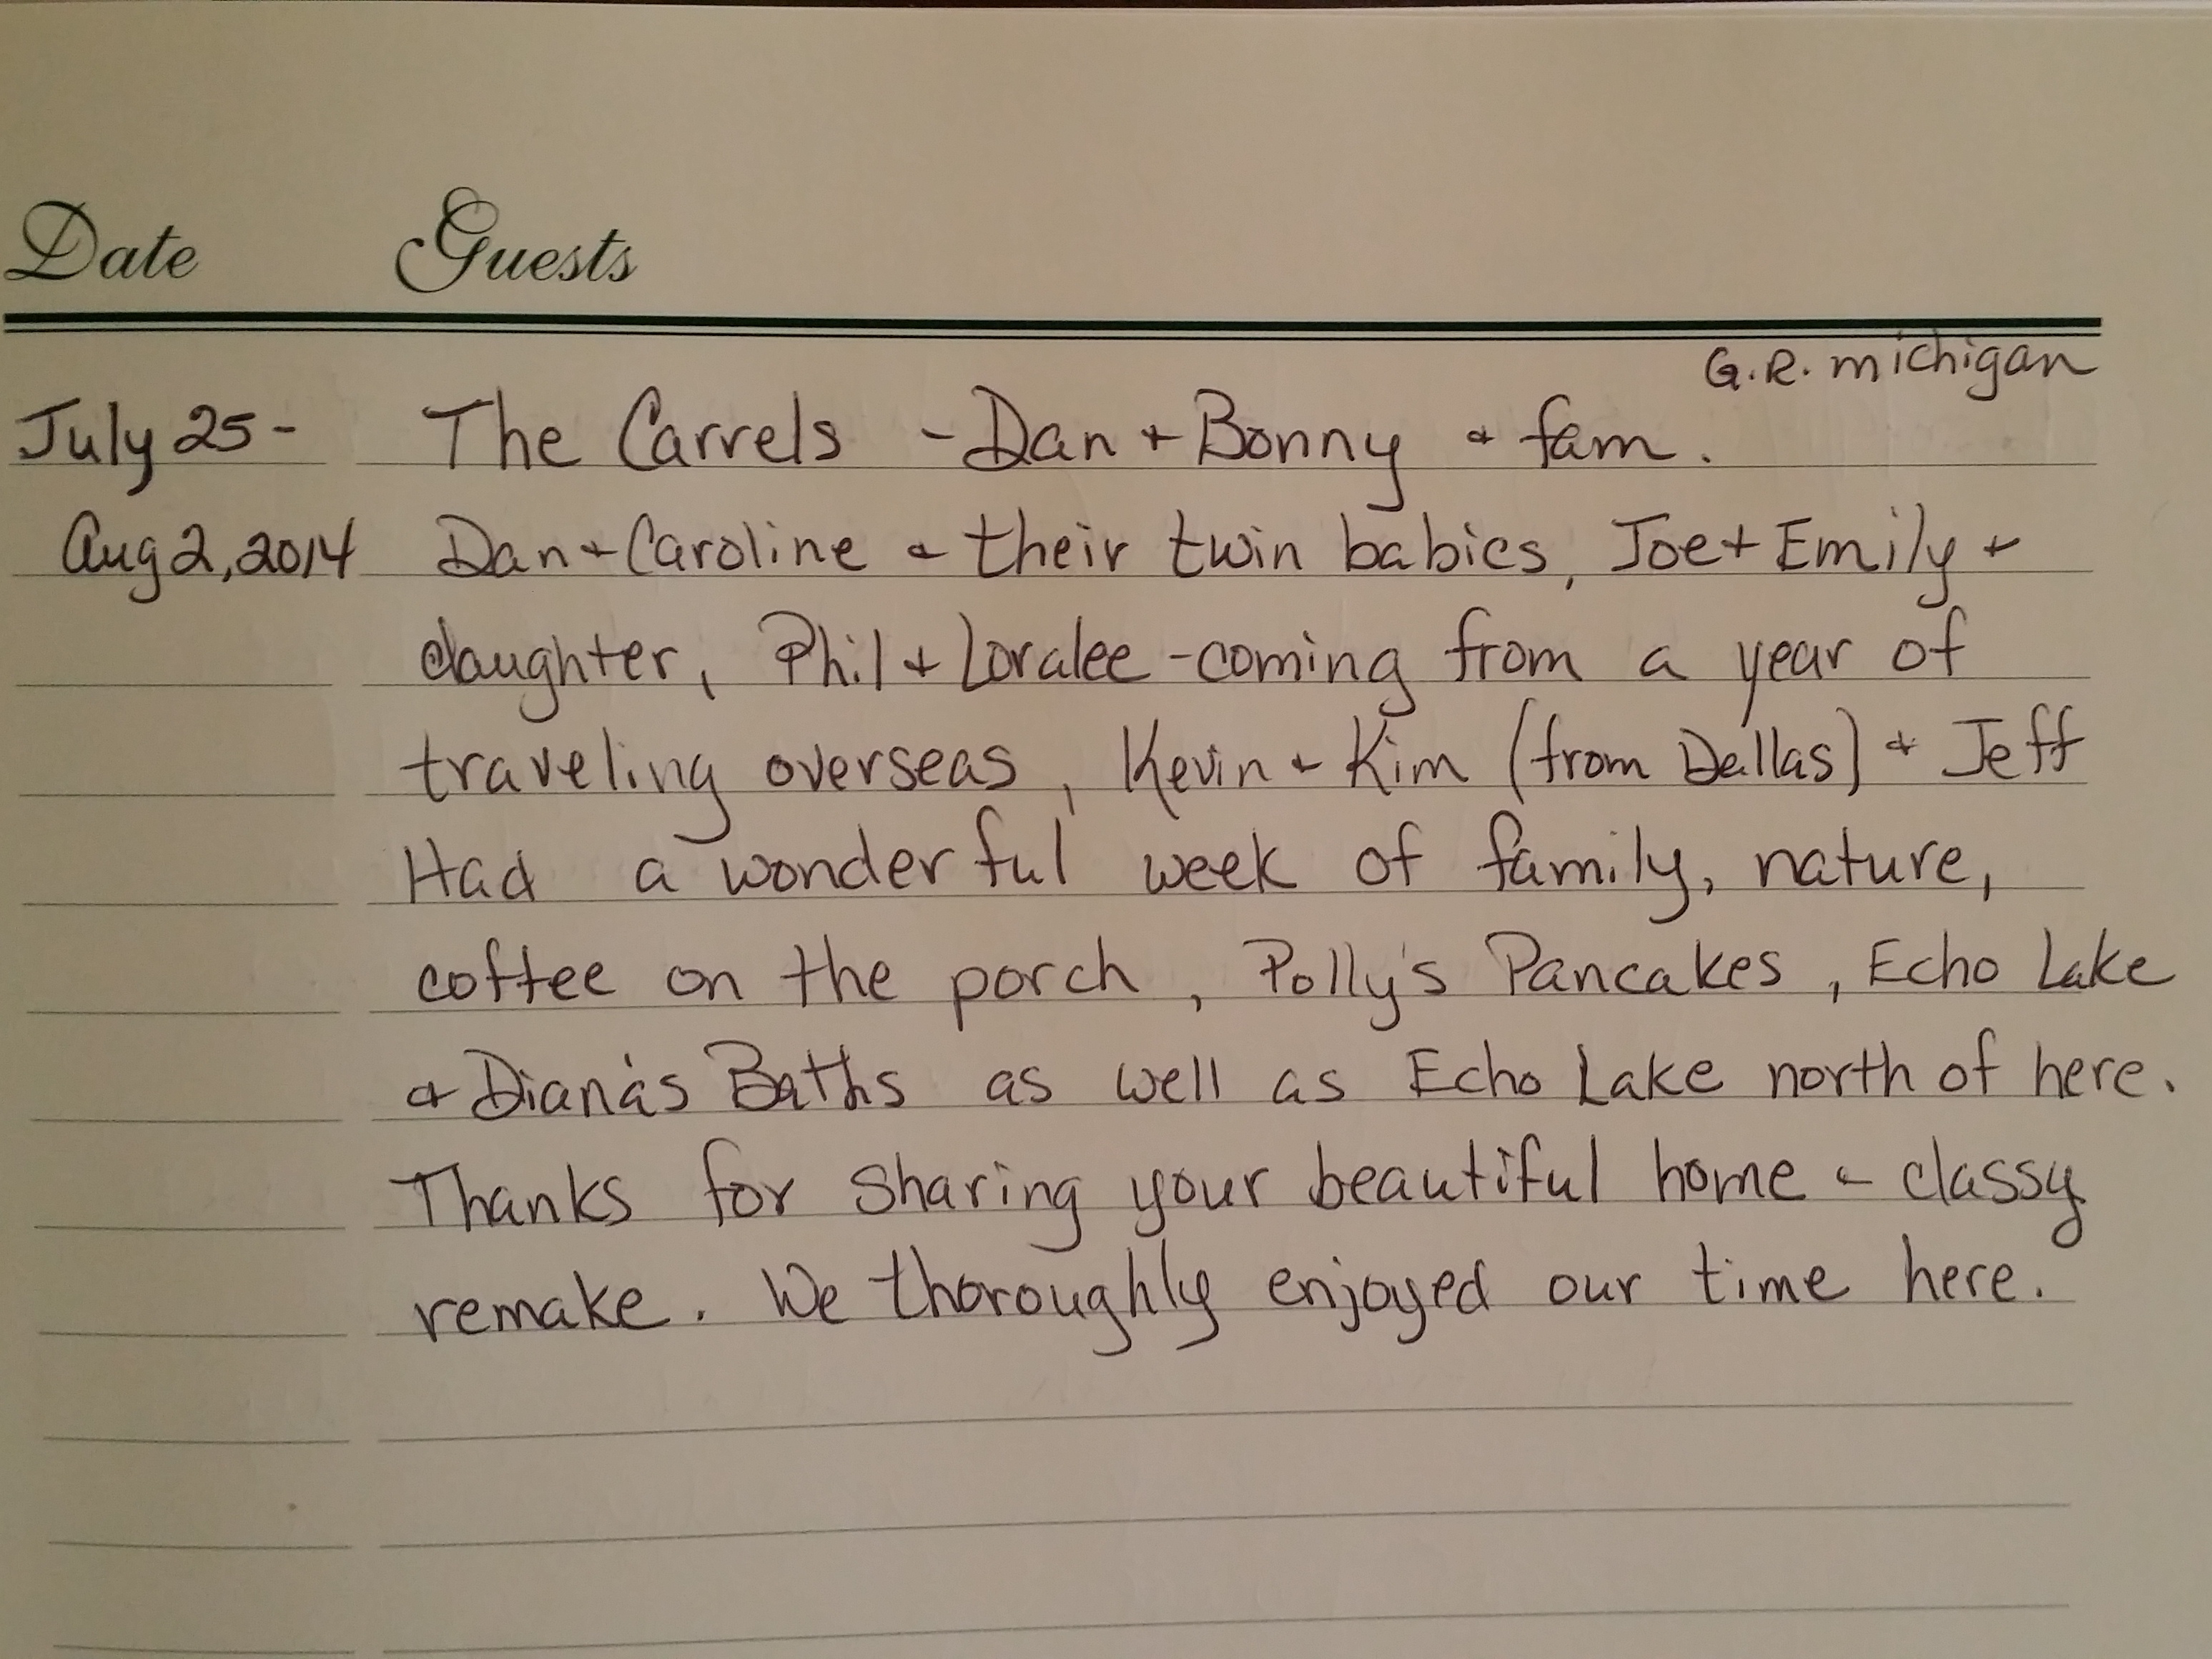 Date Guests
G.R. michigan
July 25 - The Carrels - Dan + Bonny + fam.
Aug 2, 2014 Dan + Caroline + their twin babies, Joe + Emily +
daughter, Phil + Loralee - coming from a year of
traveling overseas, Kevin + Kim (from Dallas) + Jeff
Had a wonderful week of family, nature,
coffee on the porch, Polly's Pancakes, Echo Lake
+ Diana's Baths as well as Echo Lake north of here.
Thanks for sharing your beautiful home + classy
remake. We thoroughly enjoyed our time here.